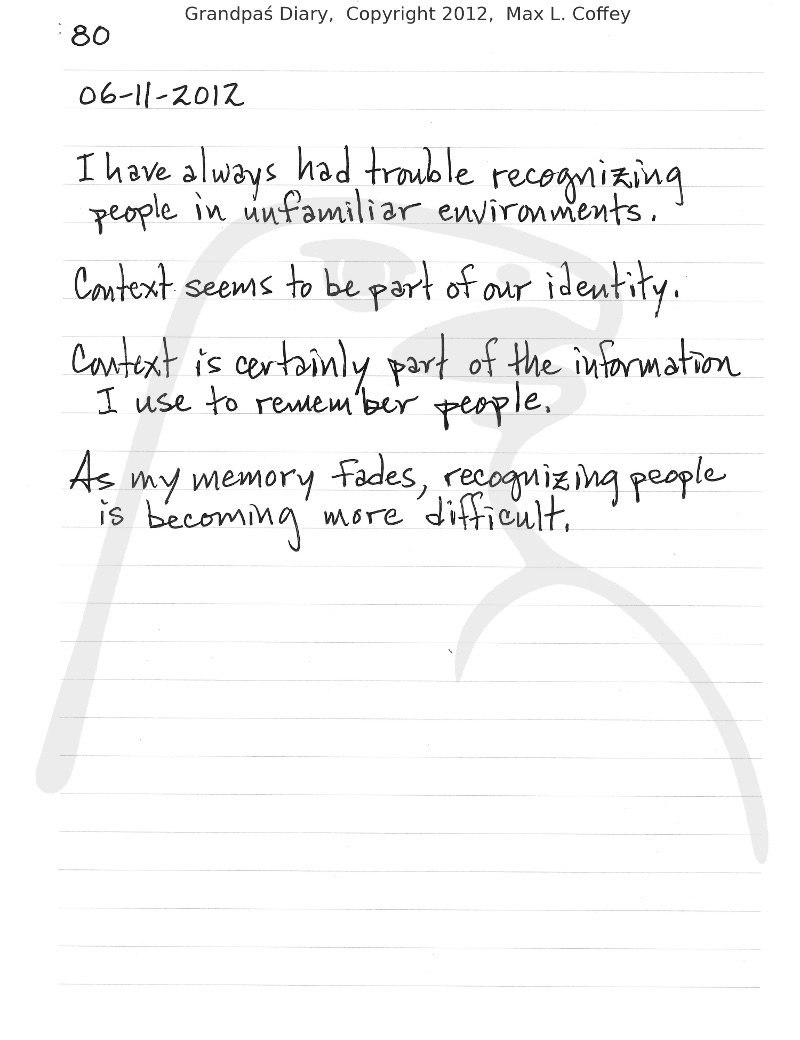 Grandpaś Diary, Copyright 2012, Max L. Coffey
80
06-11-2012
I have always had trouble recognizing
people in unfamiliar environments.
Context seems to be part of our identity.
Context is certainly part of the information
I use to remember people.
As my memory fades, recognizing people
is becoming more difficult.